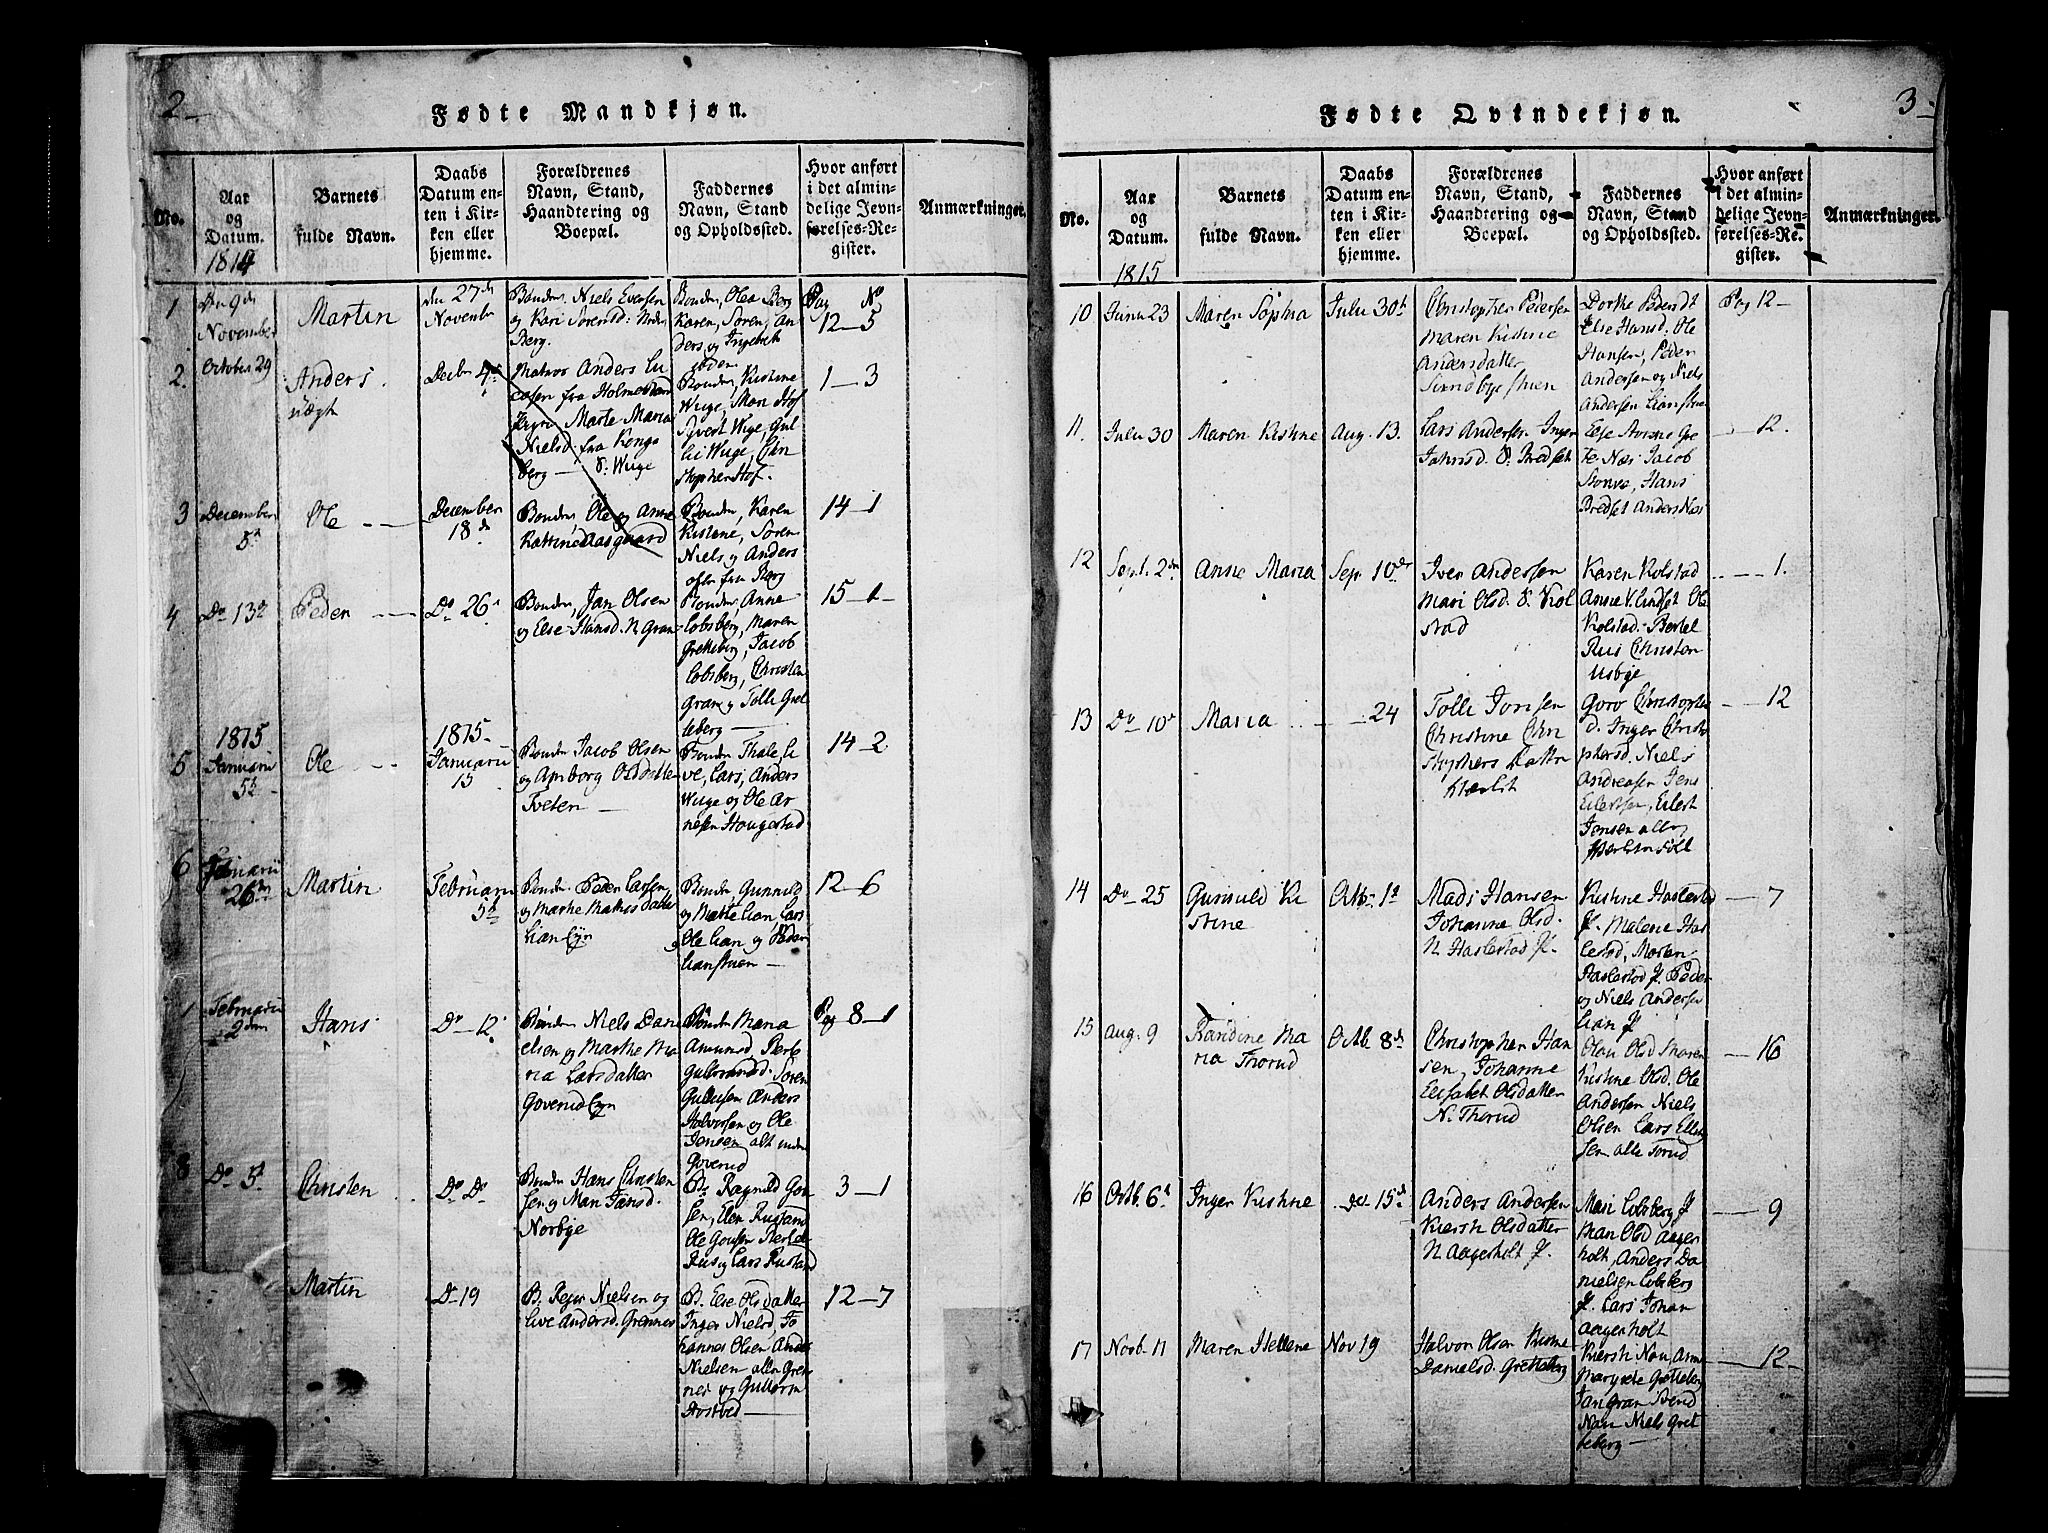 2
Fødte Mandkjøn.
No.
Aar
og
Datum.
1814
Barnets
fulde Navn.
Daabs
Datum en-
ten i Kir-
ken eller
hjemme.
Forældrenes
Navn, Stand,
Haandtering og
Boepæl.
Faddernes
Navn, Stand
og Opholdssted.
Hvor anført
i det almin-
delige Jevn-
førelses-Re-
gister.
Anmærkninger.
1
Den 9de
November
Martin
den 27de
Novembr
Bonden Niels Eversen
og Kari Sorensd:
Berg.
Bonden, Ole Berg
Karen, Soren, An
ders og Ingebret
Pag No
12 — 5
2.
October 29
Anders
uægt
Decbr 4
Matros Anders La
Marte Maria
Nielsd. fra Kongs
berg — S: Wuge
Bonden, Kistine
Wuge, Mari Hof
Syvert Wuge, Gul
lei Wuge, Chri
stopher Hof.
1 — 3
3
December
5
Ole
December
18 de
Bonden Ole og Anne
Kattrine Aasgaard
Bonden, Karen
Kistene, Soren
Niels og Anders
fra Berg
14 — 1
4.
Do 13de
Peder
Do 26
Bonden, Jan Olsen
og Else Hansd. N Gran
Bonden, Anne
Lobsberg, Maren
Gretteberg, Jacob
Lobsberg, Christen
Gran og Tolle Gret
teberg —
15 — 1
5
1815
Januarii
5te
Ole
1815
Januarii
15
Bonden Jacob Olsen
og Anborg Olsdatte
Tveten —
Bonden Thale, Li
ve, Lars, Anders
Wuge og Ole Ar
nesen Hougestad
14 — 2
6
Februarii
26
Martin
Februarii
5te
Bonden Peder Larsen
og Marthe Mathisdatte
Lian Eyn
Bonden Gunnild
og Marte Lian Lars
Ole Lian og Peder
Lianstuen —
12 — 6
Februarii
2den
Hans
Do 12
Bonden Niels Dani
elsen og Marthe Ma
ria Larsdatter
Goverud Eyn
Bonden Maria
Amunsd. Berte
Gulbransd. Soren
Gullusen Anders
Halvorsen og Ole
Jansen alt under
Goverud
Pag 8 — 1
8
Do 5te
Christen
Do Do
Bonden Hans Christen
sen og Mari Jansd.
Norbye
B: Ragnild Gou
sen, Elen Rustand
Ole Gousen Berte
Ruus og Lars Rustand
3 — 1
Martin
Do 19
B. Reger Nielsen og
Live Andersd. Grennes
B. Else Olsdatter
Inger Nielsd, Jo
hannes Olsen Anders
Nielsen alle Gren
nes og Guttorm
Hostved —
12 — 7
3
Fødte Qvindekjøn.
No.
Aar
og
Datum.
1815
Barnets
fulde Navn.
Daabs
Datum en-
ten i Kir-
ken eller
hjemme.
Forældrenes
Navn, Stand,
Haandtering og
Boepæl.
Faddernes
Navn, Stand
og Opholdssted.
Hvor anført
i det almin-
delige Jevn-
førelses-Re-
gister.
Anmærkninger.
10
Juni 23
Maren Sophia
Julii 30te
Christopher Pedersen
Maren Kistine
Andersdatter
Dorthe Pedersdt
Else Hansd. Ole
Hansen, Peder
Andersen og Niels
Andersen Lianstuen
Pag 12 —
11.
Julii 30
Maren Kistine
Aug. 13.
Lars Andersen Inger
Jahnsd. S. Bredset
Else Aasne Gre
te Næs Jacob
Hans
Bredset Anders Næs
12.
12
Sept. 2den
Anne Maria
Sepr 10de
Iver Andersen
Mari Olsd. S. Kol
stad
Karen Kolstad
Anne V. Lindset Ole
Kolstad. Bertel
Rus Christen
Usbye
1.
13
Do 10
Maria
24
Tolle Jonsen
Christine Chri
stophers Datter
Goro Christophe
d. Inger Christo
phersd. Niels
Andreasen Jens
Eilertsen, Eilert
Jonsen alle
12
14
Do 25
Gunnild Ki
stine
Octb. 1
Mads Hansen
Johanne Olsd.
N Haslestad
Kistine Haslestad
Malene Has
lestad, Morten
Haslestad Peder
og Niels Andersen
Lian
7
15
Aug. 9
Randine Ma
ria Thorud
Octb. 8de
Christopher Han
sen, Johanne
Elisabet Olsdatter
N. Thorud
Olau Olsd Maren
Kistine Olsd. Ole
Andersen Niels
Olsen Lars Ellef
sen alle Torud
16
16
Octb. 6
Inger Kistine
15
Anders Andersen
Kiersti Olsdatter
N Aagerholt
Mari Lobsberg
Mari Olsd Aager
holt, Anders Da
nielsen Lobsberg
Lars Johan
Aagerholt
9
17
Novb. 11
Maren Hellene
Nov 19
Halvor Olsen Kistine
Danielsd. Gretteberg
Kiersti Nou, Anne
Maryrete Gretteberg
Jan Gran Svend
Nou Niels Gret
teberg —
12 —